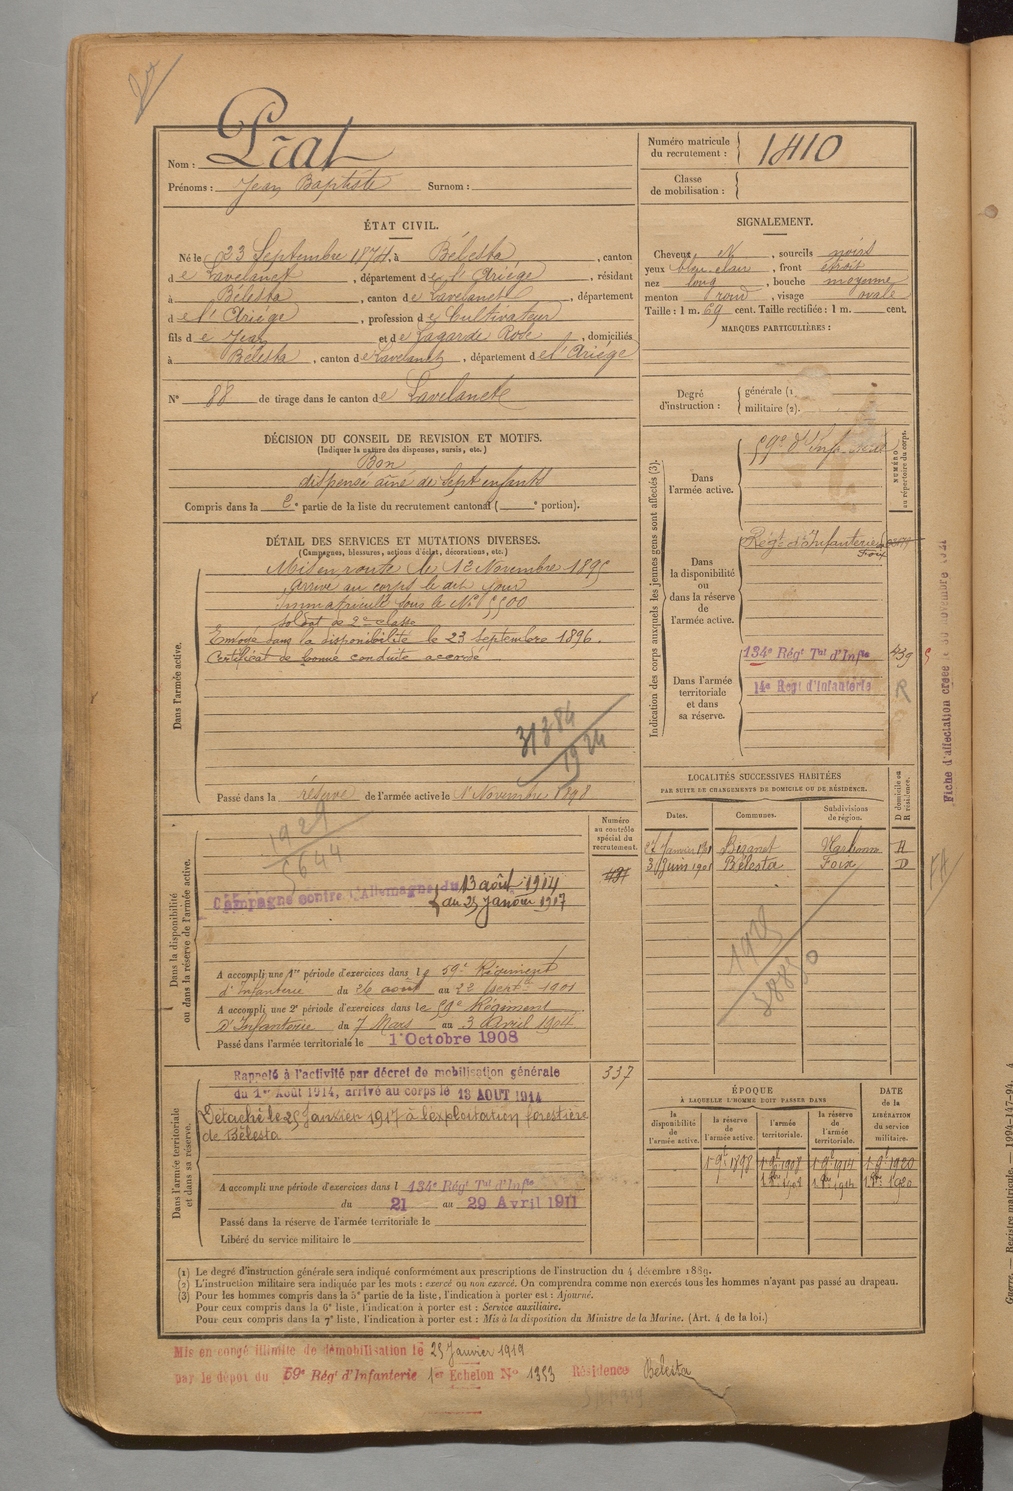 Nom : Prat
Prénoms : Jean Baptiste Surnom :
Numéro matricule du recrutement : 1410
Classe de mobilisation :
ÉTAT CIVIL.
Né le 23 Septembre 1874, à Bélesta, canton
de Lavelanet, département de l'Ariége, résidant
à Bélesta, canton de Lavelanet, département
de l'Ariége, profession de Cultivateur
fils de Jean et de Lagarde Rose, domiciliés
à Bélesta, canton de Lavelanet, département de l'Ariége
N° 88 de tirage dans le canton de Lavelanet
SIGNALEMENT.
Cheveux N, sourcils noirs
yeux bleu clair, front étroit
nez long, bouche moyenne
menton rond, visage ovale
Taille : 1 m. 69 cent. Taille rectifiée : 1 m. cent.
MARQUES PARTICULIÈRES :
Degré d'instruction : générale (1
militaire (2).
DÉCISION DU CONSEIL DE REVISION ET MOTIFS.
(Indiquer la nature des dispenses, sursis, etc.)
Bon
dispensé aîné de sept enfants
Compris dans la e partie de la liste du recrutement cantonal ( e portion).
DÉTAIL DES SERVICES ET MUTATIONS DIVERSES.
(Campagnes, blessures, actions d'éclat, décorations, etc.)
Dans l'armée active.
Mis en route le 12 Novembre 1895
arrivé au corps le dit jour
Immatriculé sous le N°
soldat de 2e classe
Envoyé dans la disponibilité le 23 septembre 1896.
Certificat de bonne conduite accordé
31384
1924
Passé dans la réserve de l'armée active le 1er Novembre 1898
Indication des corps auxquels les jeunes gens sont affectés (3).
NUMÉRO au répertoire du corps.
Dans l'armée active.
59e d'Infanterie
Dans la disponibilité ou dans la réserve de l'armée active.
Régt d'Infanterie Foix
Dans l'armée territoriale et dans sa réserve.
134e Régt Tal d'Infie 439
14e Regt d'Infanterie R
Fiche d'affectation créée le 30 novembre 1921
Dans la disponibilité ou dans la réserve de l'armée active.
Numéro au contrôle spécial du recrutement.
1921
5644
Campagne contre l'Allemagne du 13 août 1914
au 25 Janvier 1917
A accompli une 1re période d'exercices dans le 59e Régiment
d'Infanterie du 26 août au 22 septbre 1901
A accompli une 2e période d'exercices dans le 59e Régiment
D'Infanterie du 7 Mars au 3 Avril 1904
Passé dans l'armée territoriale le 1er Octobre 1908
LOCALITÉS SUCCESSIVES HABITÉES
PAR SUITE DE CHANGEMENTS DE DOMICILE OU DE RÉSIDENCE.
Dates. Communes. Subdivisions de région. D domicile ou R résidence.
27 Janvier 1901 Bizanet Narbonne R
3 Juin 1901 Bélesta Foix D
FA
Dans l'armée territoriale et dans sa réserve.
Rappelé à l'activité par décret de mobilisation générale 337
du 1er Août 1914, arrivé au corps le 13 AOUT 1914
Détaché le 25 Janvier 1917 à l'exploitation forestière
de Bélesta
A accompli une période d'exercices dans l 134e Régt Tal d'Infie
du 21 au 29 Avril 1911
Passé dans la réserve de l'armée territoriale le
Libéré du service militaire le
ÉPOQUE
A LAQUELLE L'HOMME DOIT PASSER DANS
la disponibilité de l'armée active. la réserve de l'armée active. l'armée territoriale. la réserve de l'armée territoriale.
DATE de la LIBÉRATION du service militaire.
1 9bre 1898 1 9bre 1908 1 9bre 1914 1 9bre 1920
(1) Le degré d'instruction générale sera indiqué conformément aux prescriptions de l'instruction du 4 décembre 1889.
(2) L'instruction militaire sera indiquée par les mots : exercé ou non exercé. On comprendra comme non exercés tous les hommes n'ayant pas passé au drapeau.
(3) Pour les hommes compris dans la 5e partie de la liste, l'indication à porter est : Ajourné.
Pour ceux compris dans la 6e liste, l'indication à porter est : Service auxiliaire.
Pour ceux compris dans la 7e liste, l'indication à porter est : Mis à la disposition du Ministre de la Marine. (Art. 4 de la loi.)
Mis en congé illimité de démobilisation le 25 Janvier 1919
par le dépôt du 59e Régt d'Infanterie 1er Echelon N° 1353 Résidence Bélesta
Guerre. — Registre matricule. — 1994-147-94.